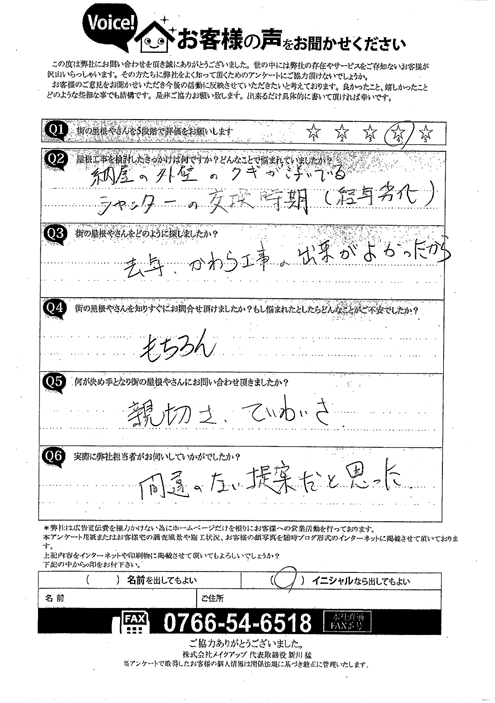 Voice!
お客様の声をお聞かせください
この度は弊社にお問い合わせを頂き誠にありがとうございました。世の中には弊社の存在やサービスをご存知ないお客様が
沢山いらっしゃいます。その方たちに弊社をよく知って頂くためのアンケートにご協力頂けないでしょうか。
お客様のご意見をお聞かせいただき今後の活動に反映させていただきたいと考えております。良かったこと、嬉しかったこと
どのような些細な事でも結構です。是非ご協力お願い致します。出来るだけ具体的に書いて頂ければ幸いです。
Q1 街の屋根やさんを5段階で評価をお願いします ☆ ☆ ☆ ☆ ☆
Q2 屋根工事を検討したきっかけは何ですか？どんなことで悩まれていましたか？
納屋の外壁のクギが浮いでいる
シャッターの交換時期（経年劣化）
Q3 街の屋根やさんをどのように探しましたか？
去年、かわら工事の出来がよかったから
Q4 街の屋根やさんを知りすぐにお問合せ頂けましたか？もし悩まれたとしたらどんなことがご不安でしたか？
もちろん
Q5 何が決め手となり街の屋根やさんにお問い合わせ頂きましたか？
親切さ、ていねいさ
Q6 実際に弊社担当者がお伺いしていかがでしたか？
間違のない提案だと思った
＊弊社は広告宣伝費を極力かけない為にホームページだけを頼りにお客様への営業活動を行っております。
本アンケート用紙またはお客様宅の調査風景や施工状況、お客様の顔写真を随時ブログ形式のインターネットに掲載させて頂いております。
上記内容をインターネットや印刷物に掲載させて頂いてもよろしいでしょうか？
下記の中から○印をお付下さい。
（　）名前を出してもよい （○）イニシャルなら出してもよい
名前 ご住所
FAX 0766-54-6518 FAX番号
ご協力ありがとうございました。
株式会社メイクアップ 代表取締役 新川 猛
当アンケートで取得したお客様の個人情報は関係法規に基づき厳正に管理いたします。